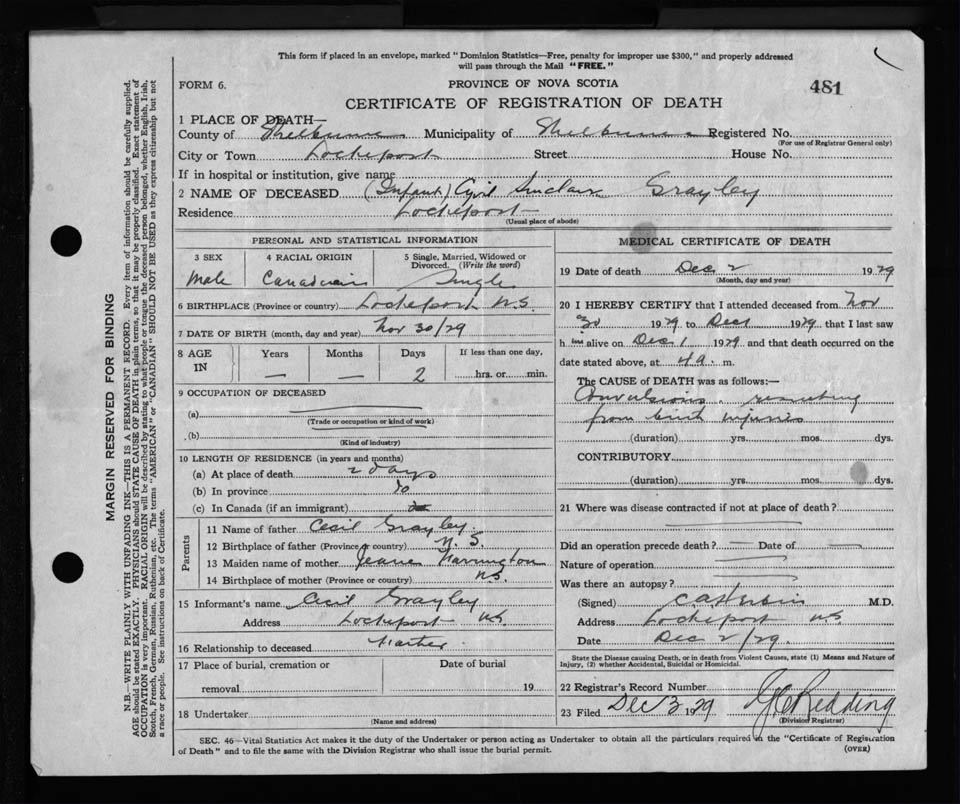 This form if placed in an envelope, marked "Dominion Statistics—Free, penalty for improper use $300," and properly addressed
will pass through the Mail "FREE."
FORM 6.
PROVINCE OF NOVA SCOTIA
481
CERTIFICATE OF REGISTRATION OF DEATH
1 PLACE OF DEATH—
County of Shelburne Municipality of Shelburne Registered No.
(For use of Registrar General only)
City or Town Lockeport Street House No.
If in hospital or institution, give name
2 NAME OF DECEASED (Infant) Cyril Sinclair Grayley
Residence Lockeport
(Usual place of abode)
PERSONAL AND STATISTICAL INFORMATION
3 SEX 4 RACIAL ORIGIN 5 Single, Married, Widowed or Divorced. (Write the word)
Male Canadian Single
6 BIRTHPLACE (Province or country) Lockeport N.S.
7 DATE OF BIRTH (month, day and year) Nov 30/29
8 AGE IN Years Months Days If less than one day,
— — 2 hrs. or min.
9 OCCUPATION OF DECEASED
(a)
(Trade or occupation or kind of work)
(b)
(Kind of industry)
10 LENGTH OF RESIDENCE (in years and months)
(a) At place of death 2 days
(b) In province Do
(c) In Canada (if an immigrant)
Parents
11 Name of father Cecil Grayley
12 Birthplace of father (Province or country) N.S.
13 Maiden name of mother Jeane
14 Birthplace of mother (Province or country) N.S.
15 Informant's name Cecil Grayley
Address Lockeport N.S.
16 Relationship to deceased Father
17 Place of burial, cremation or Date of burial
removal 19
18 Undertaker
(Name and address)
MEDICAL CERTIFICATE OF DEATH
19 Date of death Dec 2 1929
(Month, day and year)
20 I HEREBY CERTIFY that I attended deceased from Nov
30 1929 to Dec 1 1929 that I last saw
him alive on Dec 1 1929 and that death occurred on the
date stated above, at 4 a. m.
The CAUSE of DEATH was as follows:—
Convulsions, resulting
from birth injuries
(duration) yrs. mos. dys.
CONTRIBUTORY
(duration) yrs. mos. dys.
21 Where was disease contracted if not at place of death?
Did an operation precede death? — Date of —
Nature of operation
Was there an autopsy?
(Signed) M.D.
Address Lockeport N.S.
Date Dec 2/29.
State the Disease causing Death, or in death from Violent Causes, state (1) Means and Nature of
Injury, (2) whether Accidental, Suicidal or Homicidal.
22 Registrar's Record Number
23 Filed Dec 3 1929 Redding
(Division Registrar)
SEC. 46—Vital Statistics Act makes it the duty of the Undertaker or person acting as Undertaker to obtain all the particulars required in the "Certificate of Registration
of Death" and to file the same with the Division Registrar who shall issue the burial permit.
(OVER)
MARGIN RESERVED FOR BINDING
N.B.—WRITE PLAINLY WITH UNFADING INK—THIS IS A PERMANENT RECORD. Every item of information should be carefully supplied.
AGE should be stated EXACTLY. PHYSICIANS should STATE CAUSE OF DEATH in plain terms, so that it may be properly classified. Exact statement of
OCCUPATION is very important. RACIAL ORIGIN will be described by stating to what people or tongue the deceased person belonged, whether English, Irish,
Scotch, French, German, Russian, Ruthenian, etc. The terms "AMERICAN" or "CANADIAN" SHOULD NOT BE USED as they express citizenship but not
a race or people. See instructions on back of Certificate.